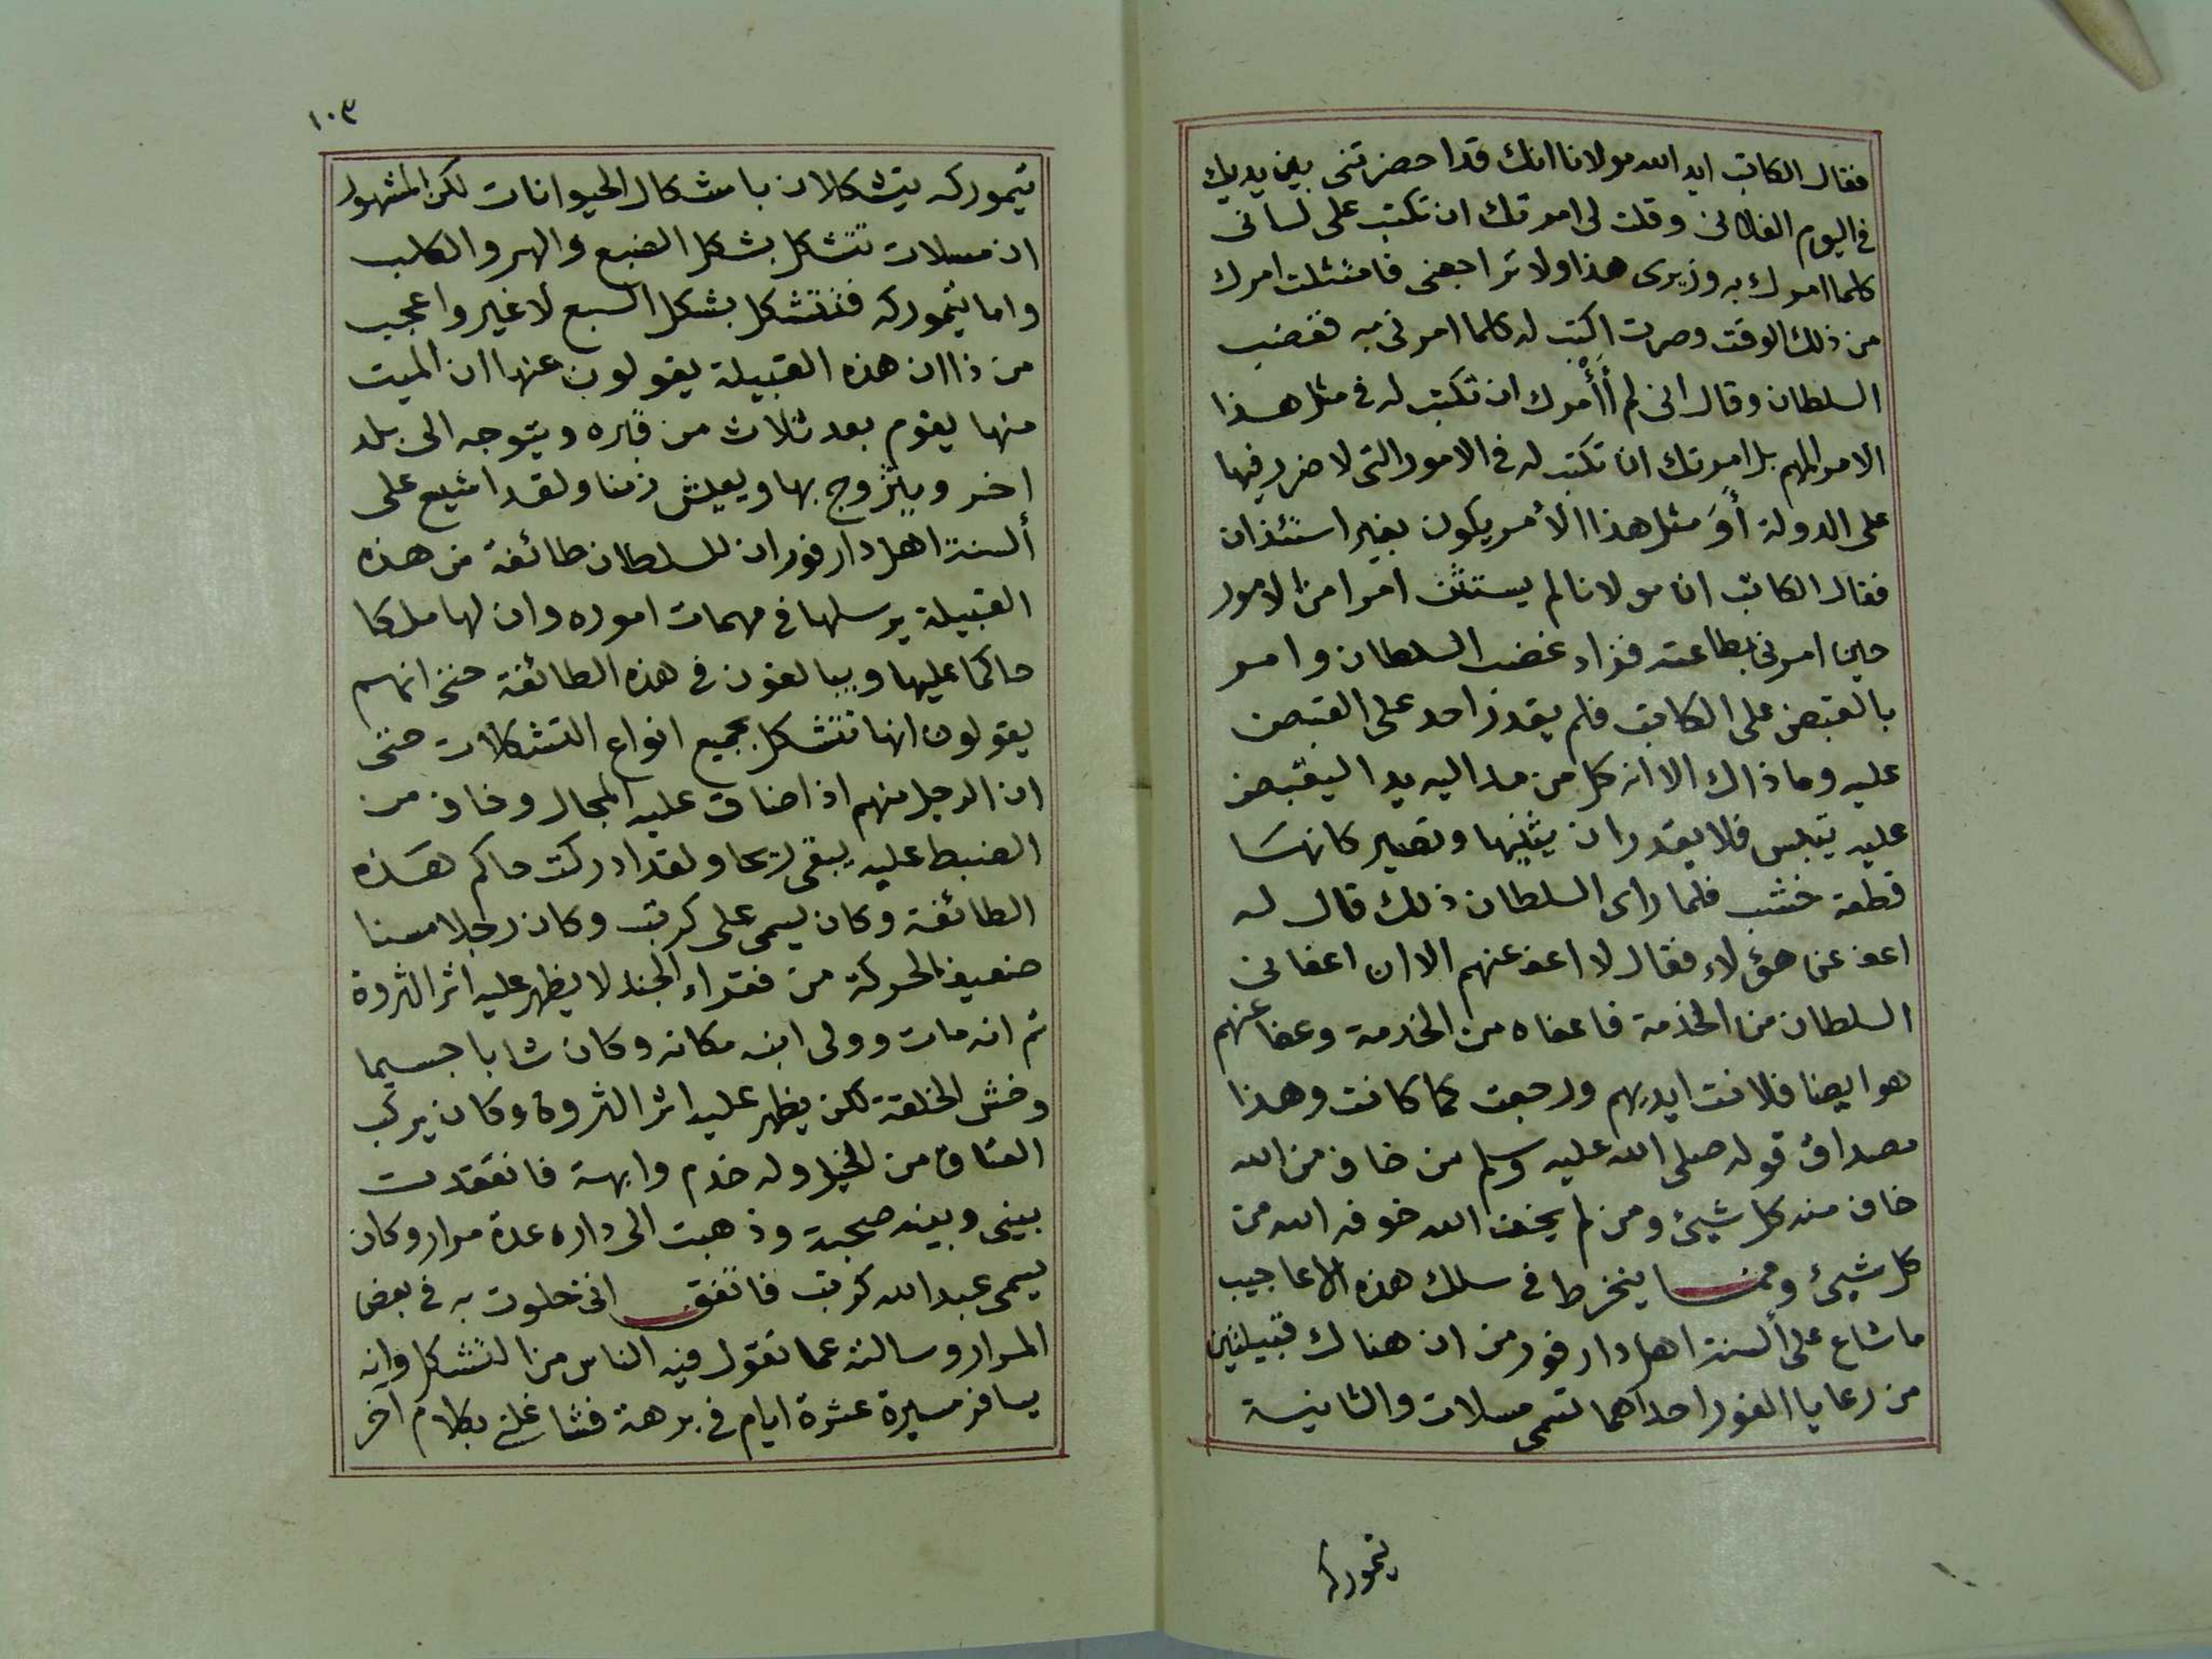 فقال الكاتب ايد الله مولانا انك قد احضرتنى بين يديك
فى اليوم الفلانى وقلت لى امرتك ان تكتب على لسانى
كلما امرك به وزيرى هذا ولا تراجعنى فامتثلت امرك
من ذلك الوقت وصرت اكتب له كلما امرنى به فغضب
السلطان وقال انى لم أأمرك ان تكتب له فى مثل هذا
الامر المهم بل امرتك ان تكتب له فى الامور التى لا ضرر فيها
على الدولة أَوَ مثل هذا الأمر يكون بغير استئذان
فقال الكاتب ان مولانا لم يستثن امرا من الامور
حين امرنى بطاعته فزاد غضب السلطان وامر
بالقبض على الكاتب فلم يقدر احد على القبض
عليه وما ذاك الا انه كل من مد اليه يدا ليقبض
عليه تيبس فلا يقدر ان يثنيها وتصير كانها
قطعة خشب فلما راى السلطان ذلك قال له
اعف عن هؤلاء فقال لا اعف عنهم الا ان اعفانى
السلطان من الخدمة فاعفاه من الخدمة وعفا عنهم
هو ايضا فلانت ايديهم ورجعت كما كانت وهذا
مصداق قوله صلى الله عليه وسلم من خاف من الله
خاف منه كل شيئ ومن لم يخف الله خوفه الله من
كل شيئ ومما ينخرط فى سلك هذه الاعاجيب
ما شاع على ألسنة اهل دارفور من ان هناك قبيلتين
من رعايا الفور احداهما تسمى مسلات والثانية
تيموركه
١٠٣
تيموركه يتشكلان باشكال الحيوانات لكن المشهور
ان مسلات تتشكل بشكل الضبع والهر والكلب
واما تيموركه فتتشكل بشكل السبع لا غير واعجب
من ذا ان هذه القبيلة يقولون عنها ان الميت
منها يقوم بعد ثلاث من قبره ويتوجه الى بلد
اخر ويتزوج بها ويعيش زمنا ولقد اشيع على
ألسنة اهل دارفور ان للسلطان طائفة من هذه
القبيلة يرسلها فى مهمات اموره وان لها ملكا
حاكما عليها ويبالغون فى هذه الطائفة حتى انهم
يقولون انها تتشكل بجميع انواع التشكلات حتى
ان الرجل منهم اذا ضاق عليه المجال وخاف من
الضبط عليه يبقى ريحا ولقد ادركت حاكم هذه
الطائفة وكان يسمى على كرتب وكان رجلا مسنا
ضعيف الحركة من فقراء الجند لا يظهر عليه اثر الثروة
ثم انه مات وولى ابنه مكانه وكان شابا جسيما
وخش الخلقة لكن يظهر عليه اثر الثروة وكان يركب
العتاق من الخيل وله خدم وابهة فانعقدت
بينى وبينه صحبة وذهبت الى داره عدة مرار وكان
يسمى عبد الله كرتب فاتفق انى خلوت به فى بعض
المرار وسالته عما تقول فيه الناس من التشكل وانه
يسافر مسيرة عشرة ايام فى برهة فشاغلنى بكلام آخر